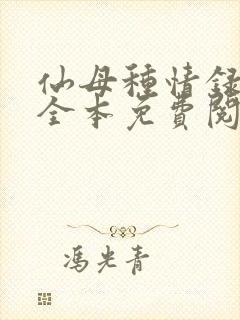 仙母種情録
全本免費閱
馮光青